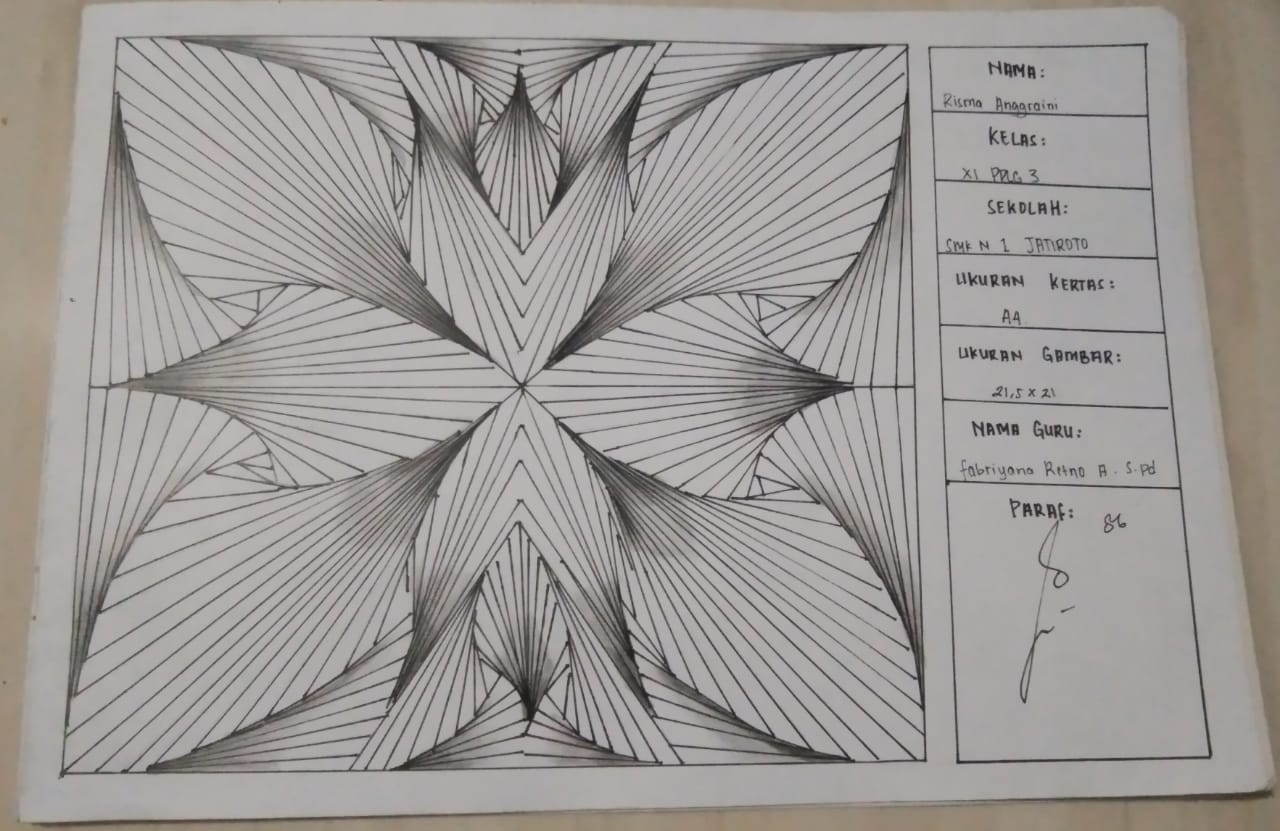 NAMA:
Risma Anggraini
KELAS:
XI PPLG 3
SEKOLAH:
SMK N 1 JATIROTO
UKURAN KERTAS:
A4.
UKURAN GAMBAR:
21,5 x 21
NAMA GURU:
Fabriyana Retno A. S.Pd
PARAF:
86